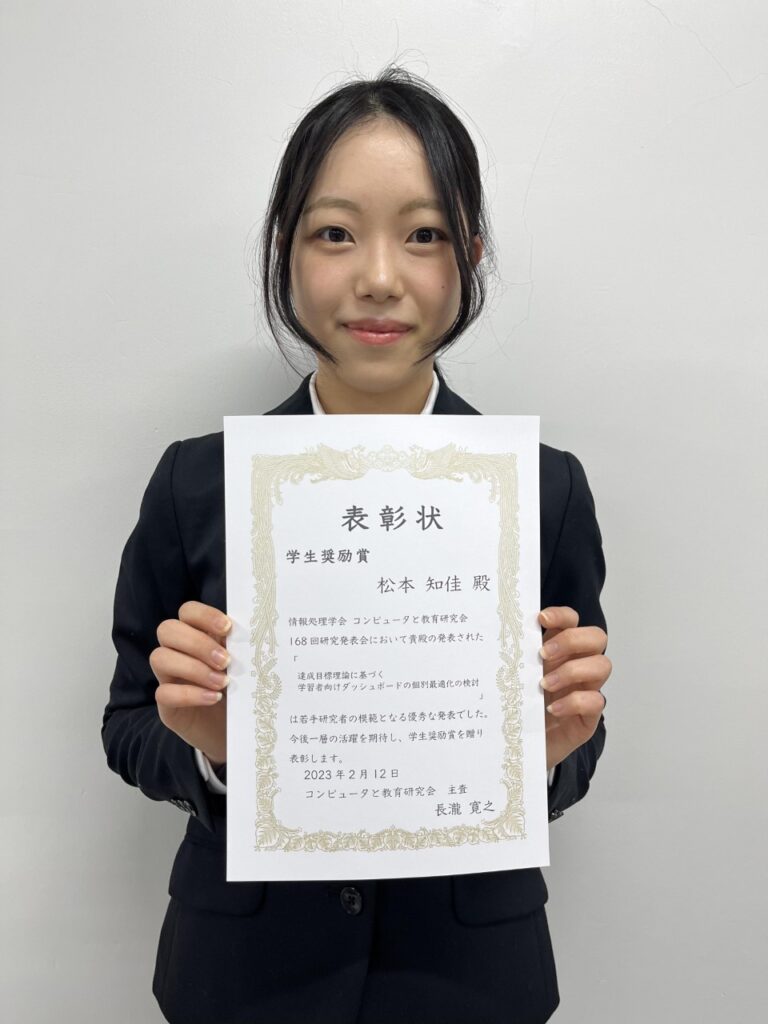 表彰状
学生奨励賞
松本 知佳 殿
情報処理学会 コンピュータと教育研究会
168回研究発表会において貴殿の発表された
「
達成目標理論に基づく
学習者向けダッシュボードの個別最適化の検討
」
は若手研究者の模範となる優秀な発表でした。
今後一層の活躍を期待し、学生奨励賞を贈り
表彰します。
2023年2月12日
コンピュータと教育研究会 主査
長瀧 寛之